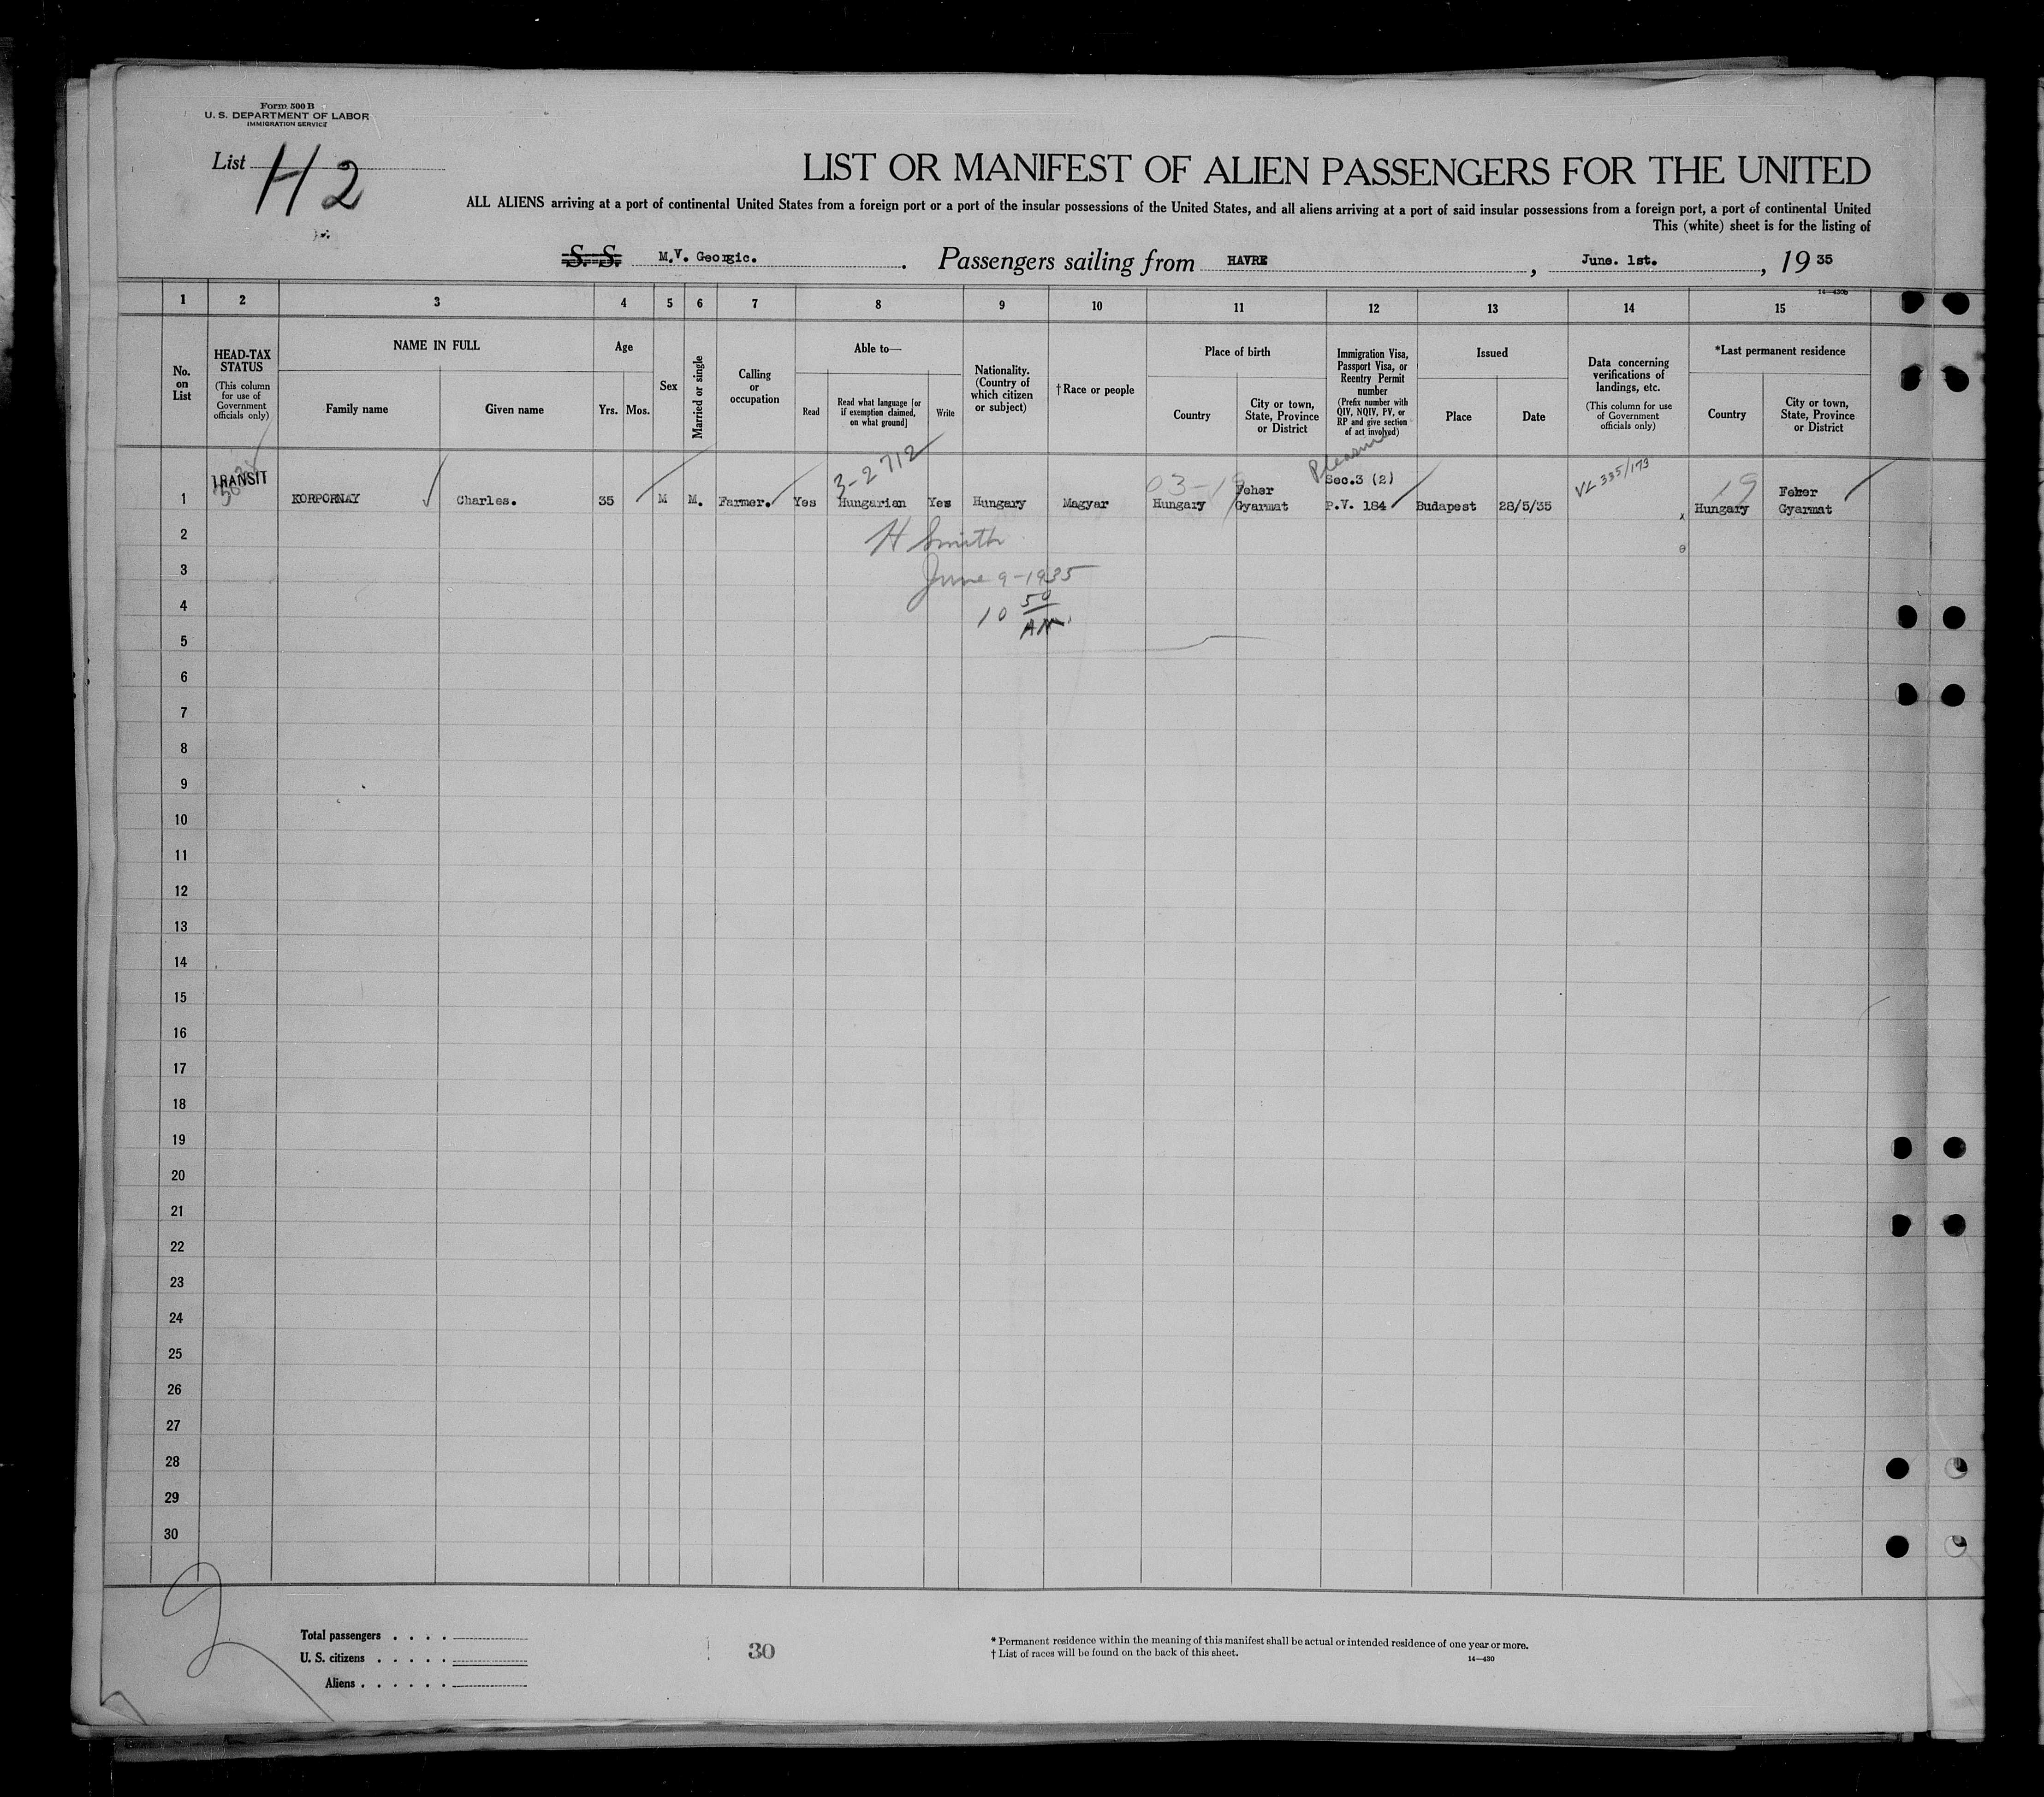 Form 500 B
U. S. DEPARTMENT OF LABOR
IMMIGRATION SERVICE
List H2
LIST OR MANIFEST OF ALIEN PASSENGERS FOR THE UNITED
ALL ALIENS arriving at a port of continental United States from a foreign port or a port of the insular possessions of the United States, and all aliens arriving at a port of said insular possessions from a foreign port, a port of continental United
This (white) sheet is for the listing of
S. S. M.V. Georgic. Passengers sailing from HAVRE, June. 1st., 19 35
14—430b
1 2 3 4 5 6 7 8 9 10 11 12 13 14 15
No. on List
HEAD-TAX STATUS
(This column for use of Government officials only)
NAME IN FULL
Family name Given name
Age
Yrs. Mos.
Sex
Married or single
Calling or occupation
Able to—
Read
Read what language [or if exemption claimed, on what ground]
Write
Nationality. (Country of which citizen or subject)
†Race or people
Place of birth
Country
City or town, State, Province or District
Immigration Visa, Passport Visa, or Reentry Permit number
(Prefix number with QIV, NQIV, PV, or RP and give section of act involved)
Issued
Place Date
Data concerning verifications of landings, etc.
(This column for use of Government officials only)
*Last permanent residence
Country
City or town, State, Province or District
3-2712
Pleasure
TRANSIT 03-19 Feher Sec.3 (2) VL 335/173 19 Feher
1 KORPORNAY Charles. 35 M M. Farmer. Yes Hungarian Yes Hungary Magyar Hungary Gyarmat P.V. 184 Budapest 28/5/35 Hungary Gyarmat
2 H Smith
3 June 9-1935
4 10 59 AM
5
6
7
8
9
10
11
12
13
14
15
16
17
18
19
20
21
22
23
24
25
26
27
28
29
30
2
Total passengers . . . .
U. S. citizens . . . . .
Aliens . . . . . .
30
* Permanent residence within the meaning of this manifest shall be actual or intended residence of one year or more.
† List of races will be found on the back of this sheet.
14—430